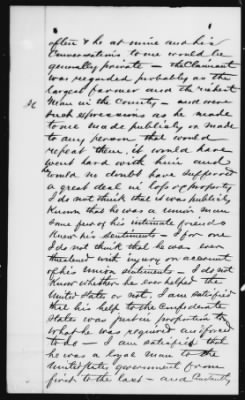 often & he at mine and his
conversations to me would be
generally private – the Claimant
was regarded probably as the
largest farmer and the richest
Man in the County – and were
such expressions as he made
to me made publicly or made
to any person that would
repeat them, it would have
went hard with him and
would no doubt have suffered
a great deal in loss of property
I do not think that it was publicly
known that he was a union man
some few of his intimate friends
knew his sentiments – I for one
I do not think that he was ever
threatened with injury on account
of his Union sentiments – I do not
know whether he ever helped the
United States or not. I am satisfied
that his help to the Confederate
States was just in proportion to
what he was required and forced
to do – I am satisfied that
he was a loyal man to the
United States government from
first to the last – and